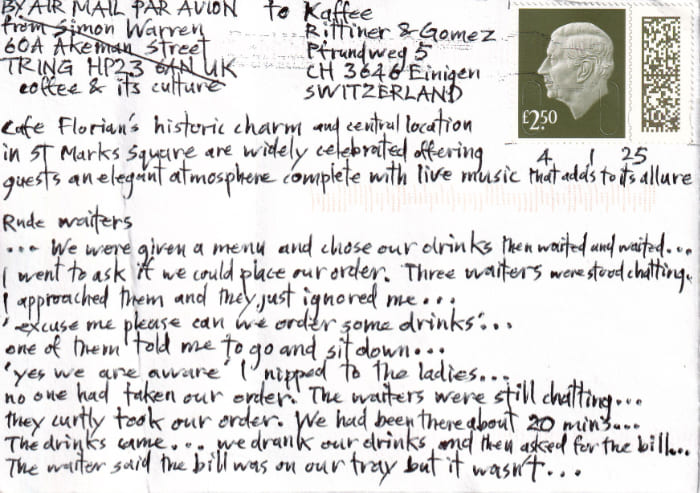 BY AIR MAIL PAR AVION
from Simon Warren
60A Akeman Street
TRING HP23 6AN UK
coffee & its culture
to Kaffee
Rittiner & Gomez
Pfrundweg 5
CH 3646 Einigen
SWITZERLAND
£2.50
Cafe Florian's historic charm and central location
in ST Marks Square are widely celebrated offering
4 1 25
guests an elegant atmosphere complete with live music that adds to its allure
Rude waiters
... We were given a menu and chose our drinks then waited and waited...
I went to ask if we could place our order. Three waiters were stood chatting.
I approached them and they just ignored me...
'excuse me please can we order some drinks'...
one of them told me to go and sit down...
'yes we are aware' I nipped to the ladies...
no one had taken our order. The waiters were still chatting...
they curtly took our order. We had been there about 20 mins...
The drinks came... we drank our drinks and then asked for the bill...
The waiter said the bill was on our tray but it wasn't...